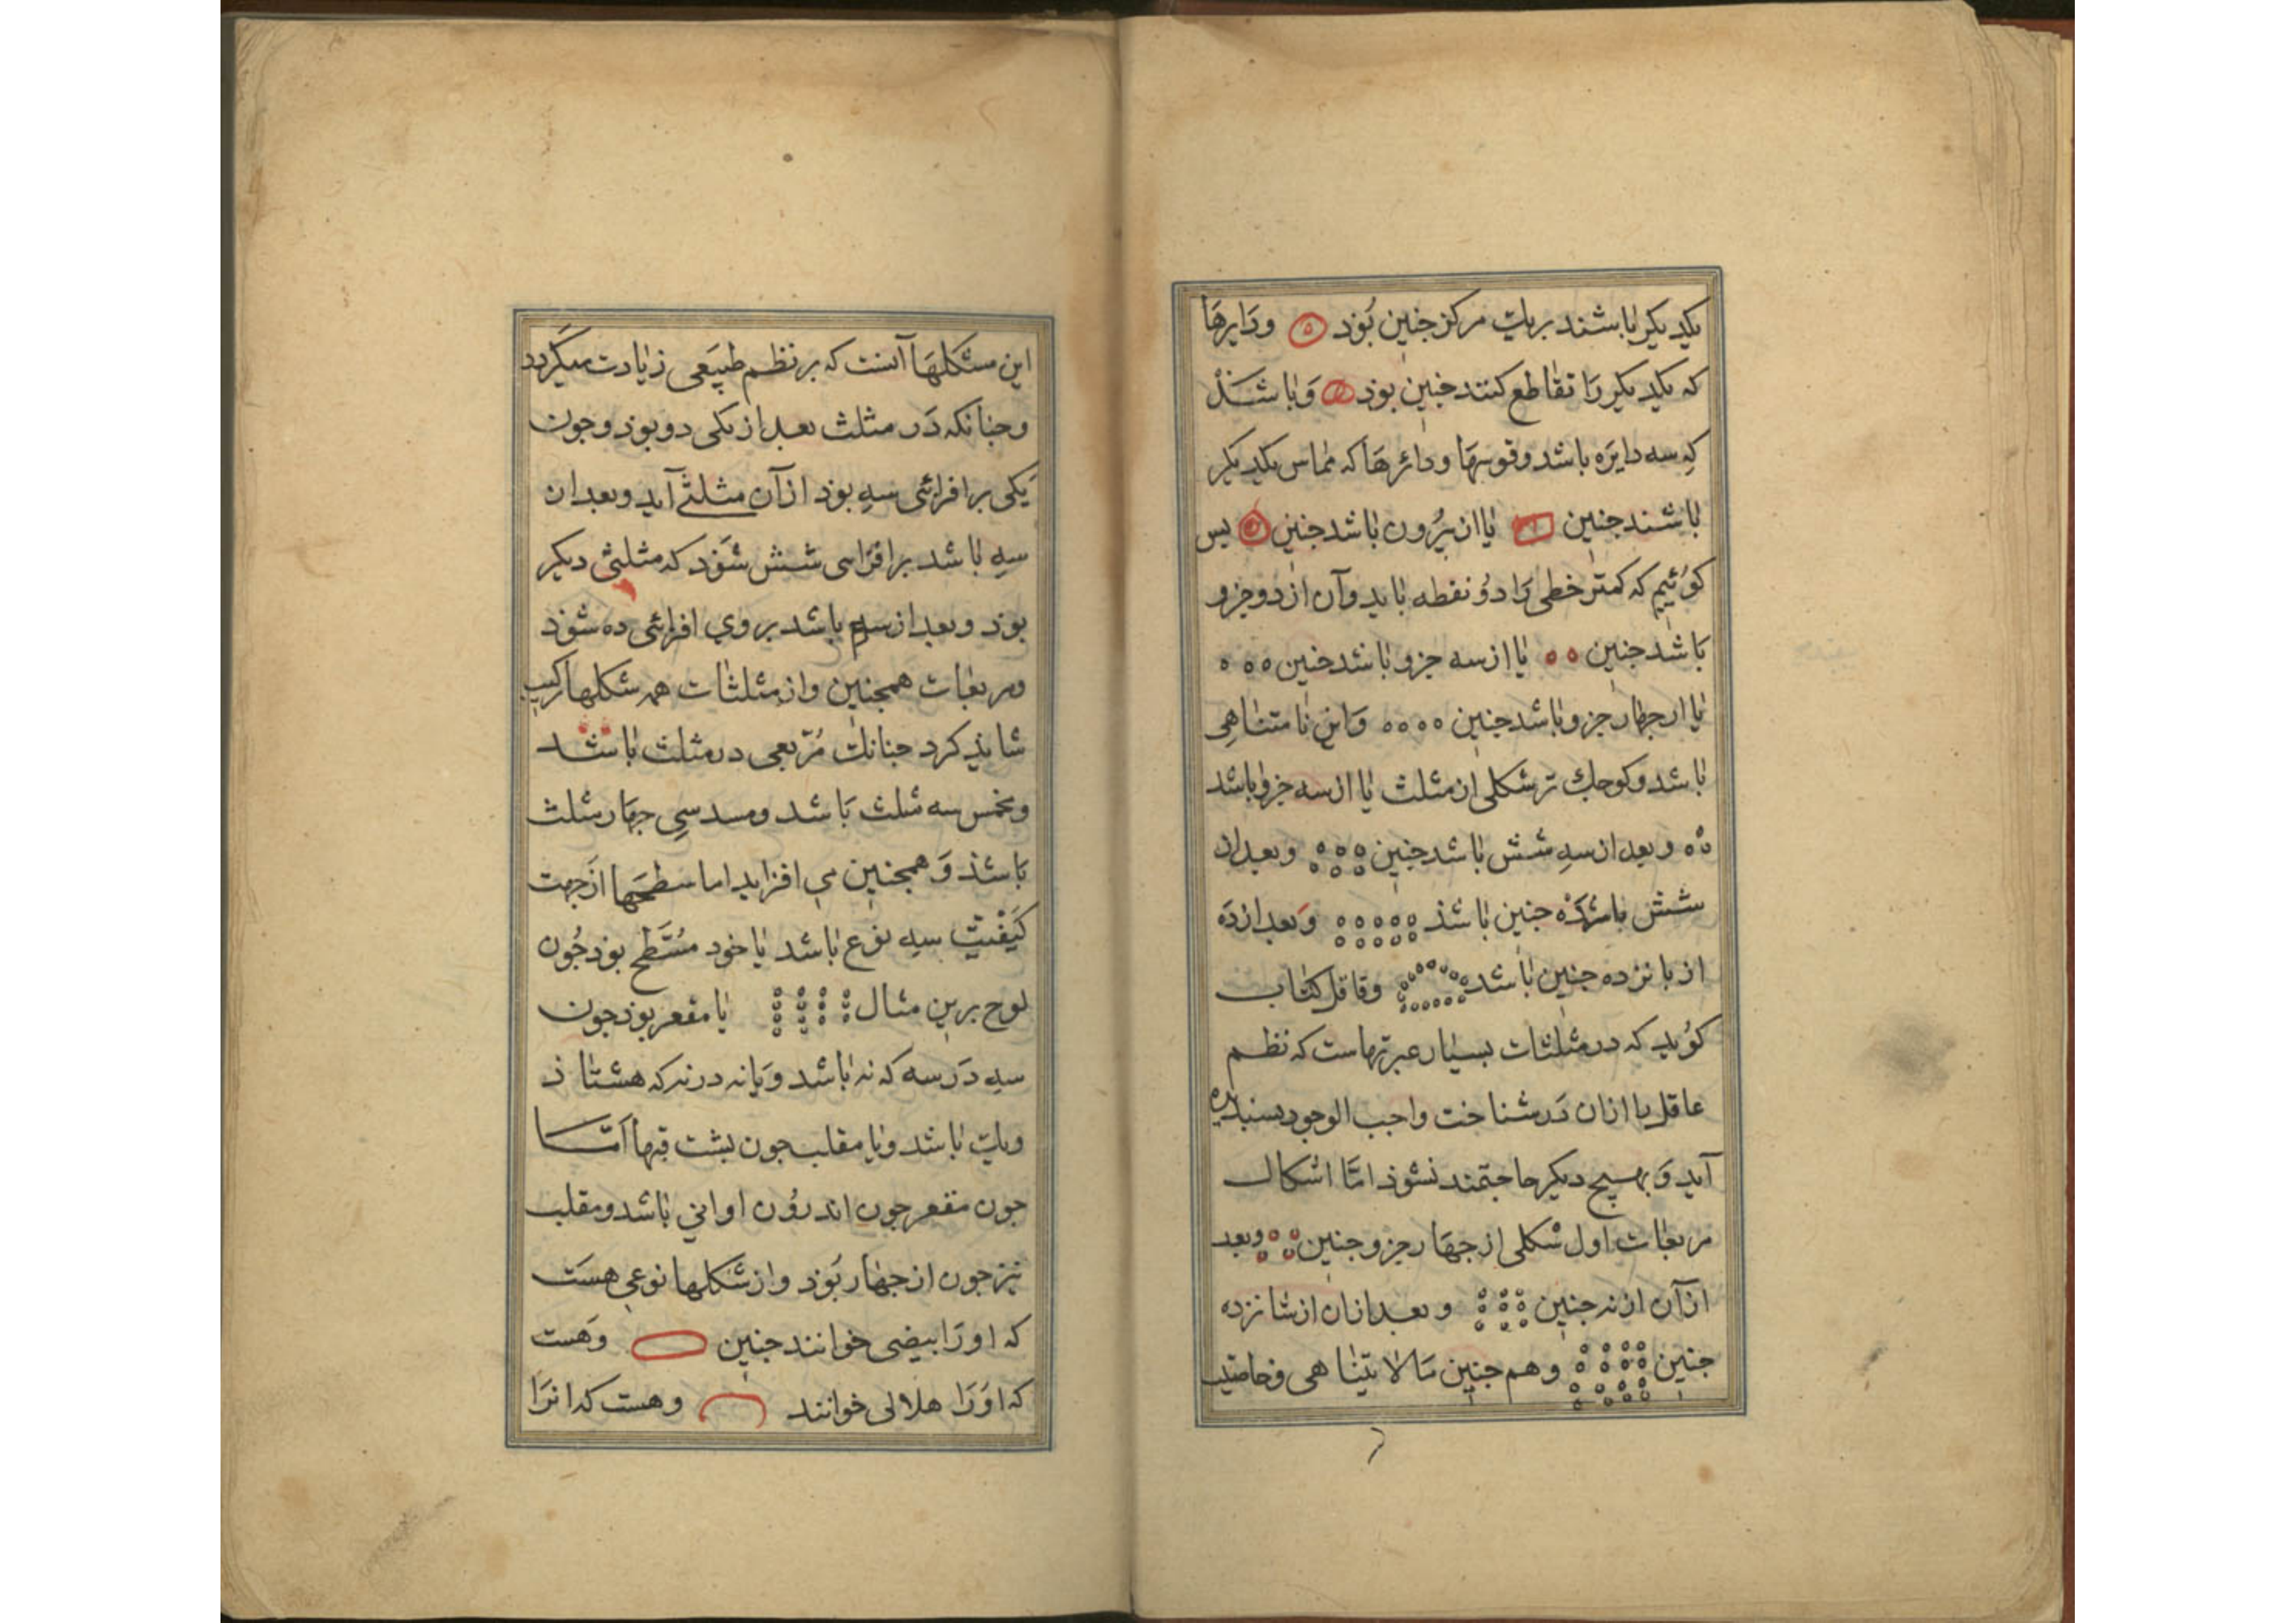 یکدیکر باشند بریک مرکز جنین بوذ ودایرها
که یکدیکر را تقاطع کنند جنین بوذ وباشند
که سه دایره باشد وقوسها ودائرها که مماس یکدیکر
باشند جنین یا از برون باشد جنین پس
کوئیم که کمتر خطی را دو نقطه باید وآن از دو جزو
باشد جنین ه ه یا از سه جزو باشد جنین ه ه ه
یا از جهار جزو باشد جنین ه ه ه ه واین نامتناهی
باشد وکوجک تر شکلی از مثلث یا از سه جزو باشد
وبعد از سه شش باشد جنین وبعد از
شش جنین باشذ وبعد از ده
از بانزده جنین باشد کتاب
کوید که در مثلثات بسیار عبرتهاست که نظم
عاقل را از آن در شناخت واجب الوجود بسنده
آید وبهیج دیکر حاجتمند نشوذ اما اشکال
مربعات اول شکلی از جهار جزو جنین وبعد
از آن از نه جنین وبعد از آن از شانزده
جنین وهم جنین مالا یتناهی وخاصیت
این شکلها آنست که بر نظم طبیعی زیادت میکردد
وجنانکه در مثلث بعد از یکی دو بوذ وجون
یکی برافزائی سه بوذ از آن مثلثی آید وبعد از
سه باشد برافزاسی شش شوذ که مثلثی دیکر
بوذ وبعد از سه باشد بروی افزائی ده شوذ
ومربعات همجنین واز مثلثات همه شکلها ترکیب
شایذ کرد جنانک مربعی در مثلث باشد
ومخمس سه مثلث باشد ومسدسی جهار مثلث
باشذ وهمجنین می افزاید اما سطحها از جهت
کیفیت سه نوع باشد یا خود مسطح بوذ جون
لوح برین مثال یا مقعر بوذ جون
سه در سه که نه باشد ویا نه در نه که هشتاذ
ویک باشد ویا مقلب جون بشت قبها اما
جون مقعر جون اندرون اوانی باشد ومقلب
نیز جون از جهار بوذ واز شکلها نوعی هست
که اورا بیضی خوانند جنین وهست
که اورا هلالی خوانند وهست که انرا